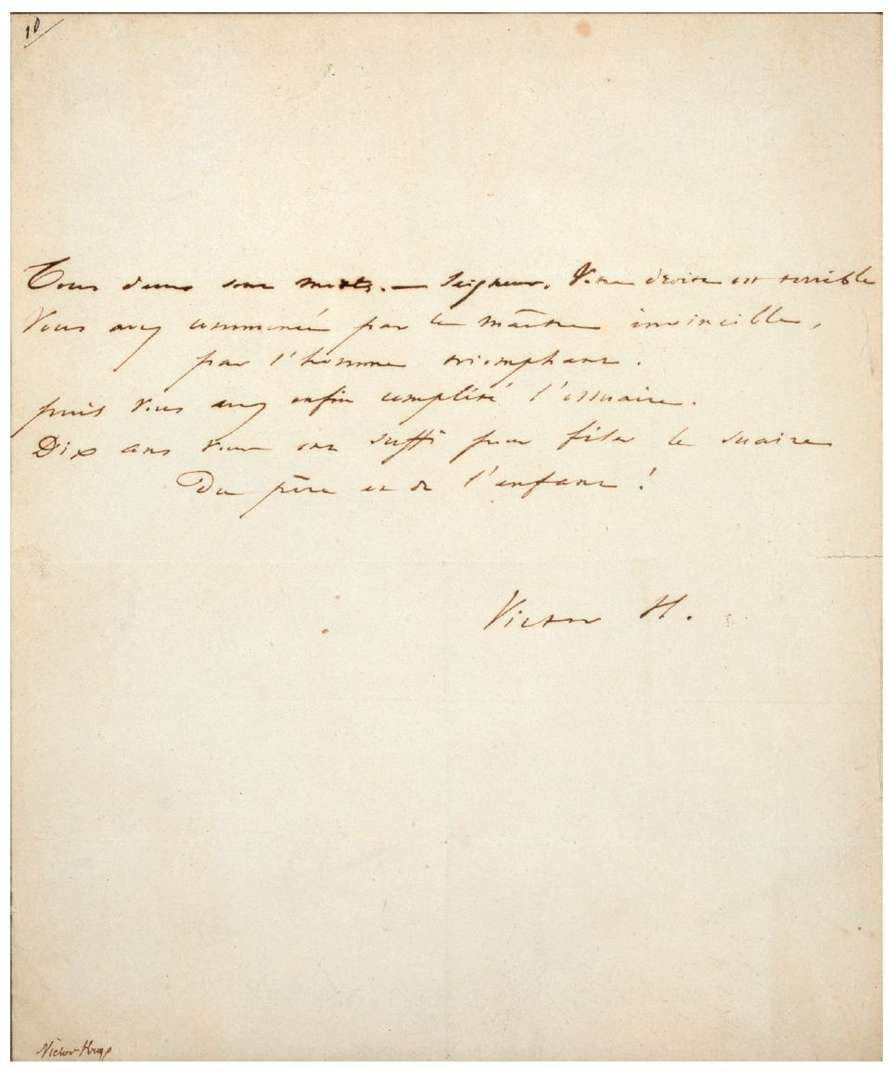 10
Tous deux sont morts. — Seigneur, Votre droite est terrible
Vous avez commencé par le maître invincible,
par l'homme triomphant.
puis vous avez enfin complété l'ossuaire.
Dix ans vous ont suffi pour filer le suaire
Du père et de l'enfant !
Victor H.
Victor Hugo